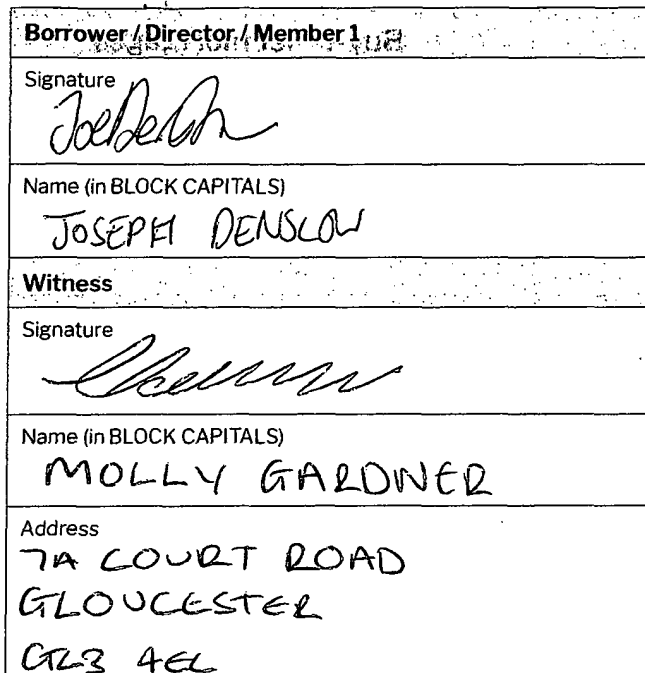 Borrower / Director / Member 1
Signature
Name (in BLOCK CAPITALS)
JOSEPH DENSLOW
Witness
Signature
Name (in BLOCK CAPITALS)
MOLLY GARDNER
Address
7A COURT ROAD
GLOUCESTER
GL3 4EL